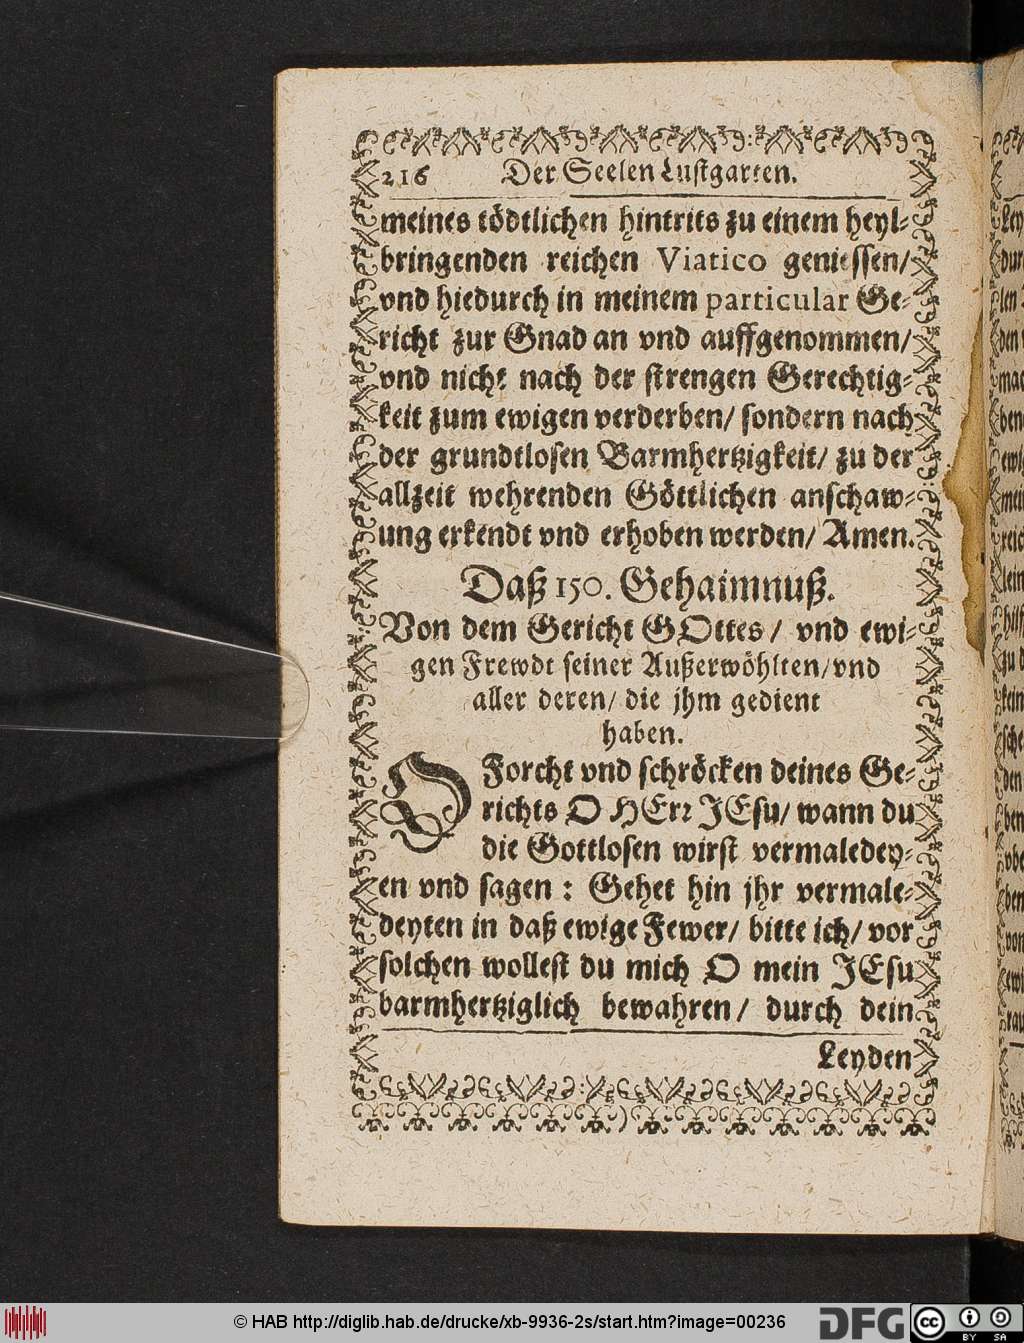 216 Der Seelen Lustgarten.
meines tödtlichen hintrits zu einem heyl-
bringenden reichen Viatico geniessen/
vnd hiedurch in meinem particular Ge-
richt zur Gnad an vnd auffgenommen/
vnd nicht nach der strengen Gerechtig-
keit zum ewigen verderben/ sondern nach
der grundtlosen Barmhertzigkeit/ zu der
allzeit wehrenden Göttlichen anschaw-
ung erkendt vnd erhoben werden/ Amen.
Daß 150. Gehaimnuß.
Von dem Gericht GOttes/ vnd ewi-
gen Frewdt seiner Außerwöhlten/ vnd
aller deren/ die jhm gedient
haben.
O Forcht vnd schröcken deines Ge-
richts O HErr JEsu/ wann du
die Gottlosen wirst vermaledey-
en vnd sagen: Gehet hin jhr vermale-
deyten in daß ewige Fewer/ bitte ich/ vor
solchen wollest du mich O mein JEsu
barmhertziglich bewahren/ durch dein
Leyden
© HAB http://diglib.hab.de/drucke/xb-9936-2s/start.htm?image=00236
DFG
cc BY SA